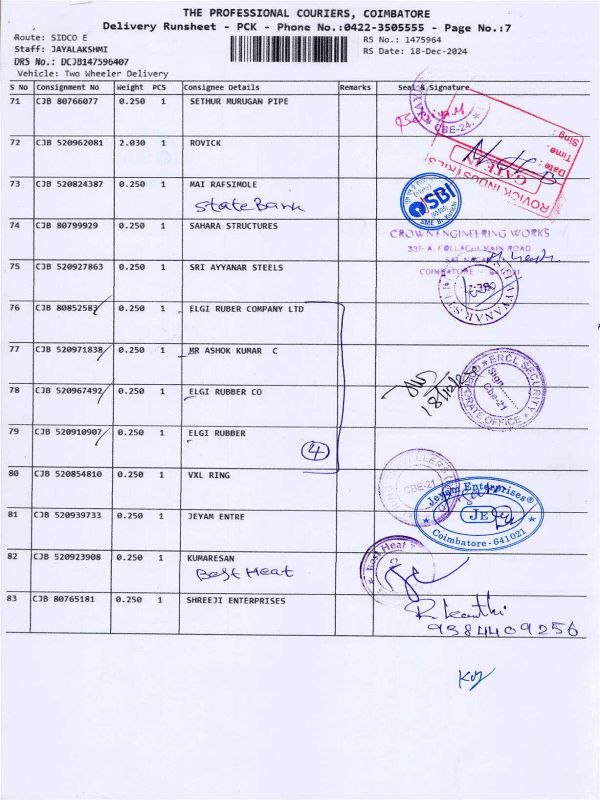 THE PROFESSIONAL COURIERS, COIMBATORE
Delivery Runsheet - PCK - Phone No.:0422-3505555 - Page No.:7
Route: SIDCO E
RS No.: 1475964
Staff: JAYALAKSHMI
RS Date: 18-Dec-2024
DRS No.: DCJB147596407
Vehicle: Two Wheeler Delivery
S No Consignment No Weight PCS Consignee Details Remarks Seal & Signature
71 CJB 80766077 0.250 1 SETHUR MURUGAN PIPE
CBE-24.
72 CJB 520962081 2.030 1 ROVICK
Sing:
Time:
Date
GATE IN
ROVICK INDUSTRIES
73 CJB 520824387 0.250 1 MAI RAFSIMOLE
State Bank
SBI
SME Br.
74 CJB 80799929 0.250 1 SAHARA STRUCTURES
CROWN ENGINEERING WORKS
POLLACHI MAIN ROAD
COIMBATORE 641021
75 CJB 520927863 0.250 1 SRI AYYANAR STEELS
76 CJB 80852582 0.250 1 ELGI RUBER COMPANY LTD
77 CJB 520971838 0.250 1 MR ASHOK KUMAR C
78 CJB 520967492 0.250 1 ELGI RUBBER CO
18/12/24
ERCL SECURITY
Sign
Cbe-21
CORPORATE OFFICE
79 CJB 520910907 0.250 1 ELGI RUBBER
4
80 CJB 520854810 0.250 1 VXL RING
CBE-21
81 CJB 520939733 0.250 1 JEYAM ENTRE
Jeyam Enterprises®
JE
Coimbatore-641021
82 CJB 520923908 0.250 1 KUMARESAN
Best Heat
Best Heat
83 CJB 80765181 0.250 1 SHREEJI ENTERPRISES
9384409256